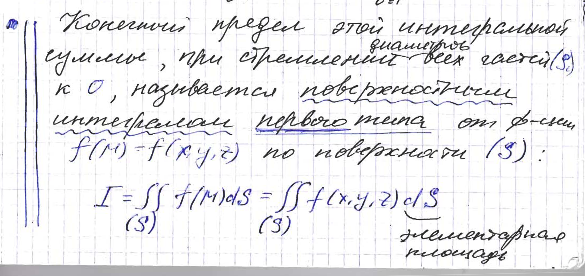 Конечный предел этой интегральной
суммы, при стремлении диаметров всех частей (Si)
к 0, называется поверхностным
интегралом первого типа от ф-ции
f(M) = f(x,y,z) по поверхности (S) :
I = ∬ f(M)dS = ∬ f(x,y,z) dS
(S) (S)
элементарная
площадь